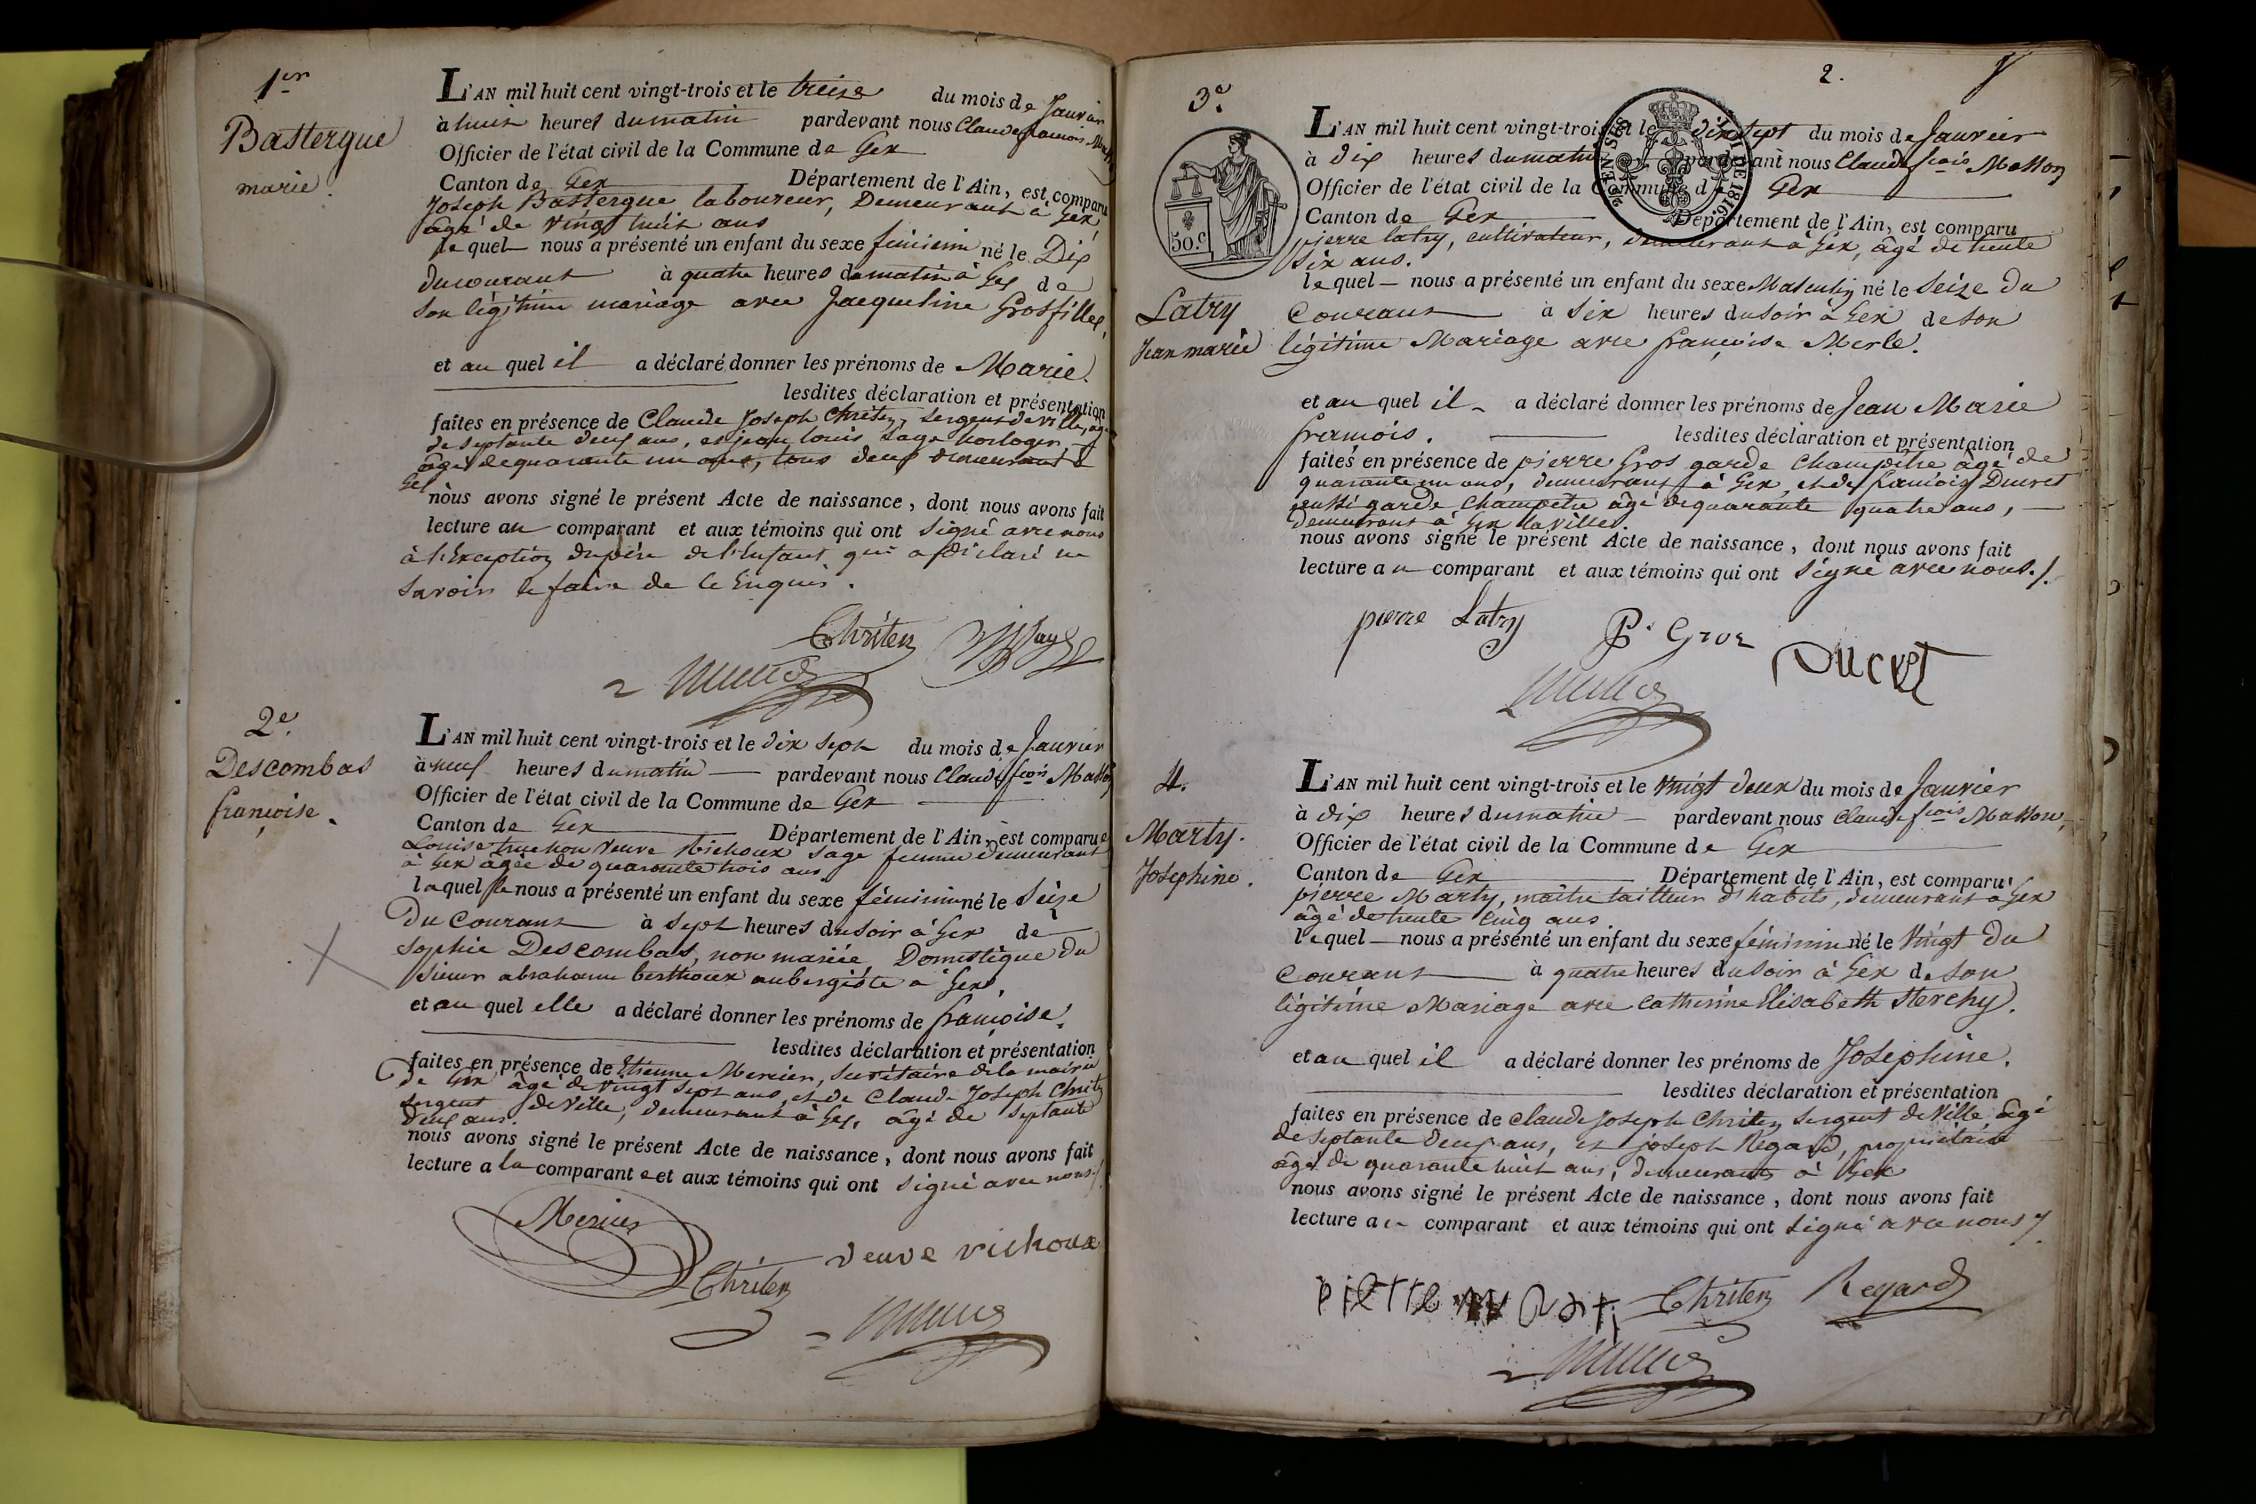 1er
Bastergue
marie.
L'AN mil huit cent vingt-trois et le treize du mois de Janvier
à huit heures du matin pardevant nous Claude françois
Officier de l'état civil de la Commune de Gex
Canton de Gex Département de l'Ain, est comparu
Joseph Bastergue laboureur, Demeurant à Gex,
âgé de vingt huit ans
le quel nous a présenté un enfant du sexe féminin né le Dix
du courant à quatre heures du matin à Gex de
son légitime mariage avec Jacqueline Grosfillex,
et au quel il a déclaré donner les prénoms de Marie.
lesdites déclaration et présentation
faites en présence de Claude Joseph Chriten, sergent de ville, âgé
de septante deux ans, et jean louis Sage horloger,
âgé de quarante un ans, tous deux demeurant à
Gex
nous avons signé le présent Acte de naissance, dont nous avons fait
lecture au comparant et aux témoins qui ont signé avec nous
à l'Exception du père de l'Enfant qui a déclaré ne
savoir le faire de ce Enquis.
Chriten
2e.
Descombas
françoise.
L'AN mil huit cent vingt-trois et le dix sept du mois de Janvier
à neuf heures du matin pardevant nous Claude fçois Masson
Officier de l'état civil de la Commune de Gex
Canton de Gex Département de l'Ain, est comparue
Louise truchon veuve Michoux sage femme demeurant
à Gex âgée de quarante trois ans
laquelle nous a présenté un enfant du sexe féminin né le seize
Du courant à sept heures du soir à Gex de
Sophie Descombas, non mariée, Domestique du
sieur abraham berthoux aubergiste à Gex,
et au quel elle a déclaré donner les prénoms de françoise.
lesdites déclaration et présentation
faites en présence de Etienne Mercier, secrétaire de la mairie
de Gex âgé de vingt sept ans, et de Claude Joseph Chriten
sergent de Ville, demeurant à Gex, âgé de septante
deux ans.
nous avons signé le présent Acte de naissance, dont nous avons fait
lecture a la comparante et aux témoins qui ont signé avec nous./.
Mercier
Chriten veuve vichoux
2.
3e.
50.c
Latry
Jean marie
L'AN mil huit cent vingt-trois et le dix sept du mois de Janvier
à dix heures du matin pardevant nous Claude fçois Masson
Officier de l'état civil de la Commune de Gex
Canton de Gex Département de l'Ain, est comparu
pierre latry, cultivateur, demeurant à Gex, âgé de trente
six ans.
lequel nous a présenté un enfant du sexe Masculin né le seize du
Courant à six heures du soir à Gex de son
légitime Mariage avec françoise Merle.
et au quel il a déclaré donner les prénoms de Jean Marie
françois. lesdites déclaration et présentation
faites en présence de pierre Gros garde Champêtre âgé de
quarante un ans, demeurant à Gex, et de françois Ducret
aussi garde Champêtre âgé de quarante quatre ans,
demeurant à Gex la ville.
nous avons signé le présent Acte de naissance, dont nous avons fait
lecture au comparant et aux témoins qui ont signé avec nous./.
pierre Latry P. Gros
Ducret
4.
Marty.
Josephine.
L'AN mil huit cent vingt-trois et le vingt deux du mois de Janvier
à dix heures du matin pardevant nous Claude fçois Masson,
Officier de l'état civil de la Commune de Gex
Canton de Gex Département de l'Ain, est comparu
pierre Marty, maître tailleur d'habits, demeurant à Gex
âgé de trente cinq ans.
lequel nous a présenté un enfant du sexe féminin né le vingt du
Courant à quatre heures du soir à Gex de son
légitime Mariage avec Catherine Elisabeth Sterchy.
et au quel il a déclaré donner les prénoms de Josephine.
lesdites déclaration et présentation
faites en présence de Claude Joseph Chriten sergent de Ville âgé
de septante deux ans, et joseph Regard, propriétaire
âgé de quarante huit ans, demeurants à Gex
nous avons signé le présent Acte de naissance, dont nous avons fait
lecture au comparant et aux témoins qui ont signé avec nous./.
pierre marti Chriten Regard